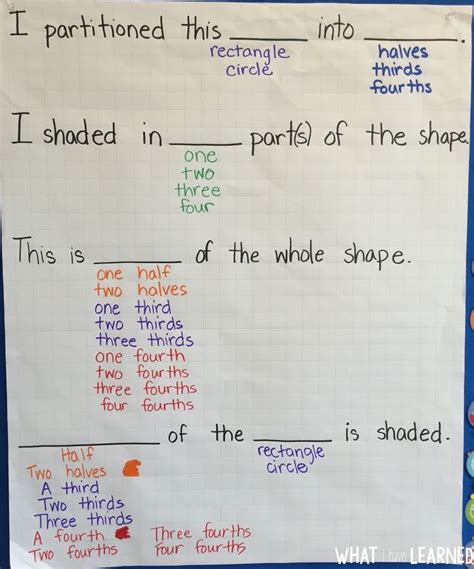 I partitioned this ______ into ______.
rectangle halves
circle thirds
fourths
I shaded in ______ part(s) of the shape.
one
two
three
four
This is ______ of the whole shape.
one half
two halves
one third
two thirds
three thirds
one fourth
two fourths
three fourths
four fourths
______ of the ______ is shaded.
Half rectangle
Two halves circle
A third
Two thirds
Three thirds
A fourth Three fourths
Two fourths Four fourths
WHAT i have LEARNED